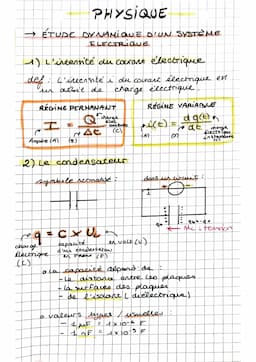 PHYSIQUE
→ ÉTUDE DYNAMIQUE D'UN SYSTÈME
ELECTRIQUE
1) L'intensité du courant électrique
def : L'intensité i du courant électrique est
un débit de charge électrique.
RÉGIME PERMANANT
I = Q / Δt
Ampère (A)
(C)
(s)
RÉGIME VARIABLE
i(t) = dq(t) / dt
(A)
charge
électrique
2) Le condensateur
symbole normalisé :
dans un circuit :
q = C x Uc
charge
électrique
(C)
capacité
d'un condensateur
en Farad (F)
en volt (V)
Uc : tension
o La capacité dépend de
- la distance entre les plaques
- la surfaces des plaques
- de l'isolant (diélectrique)
o valeurs types / usuelles :